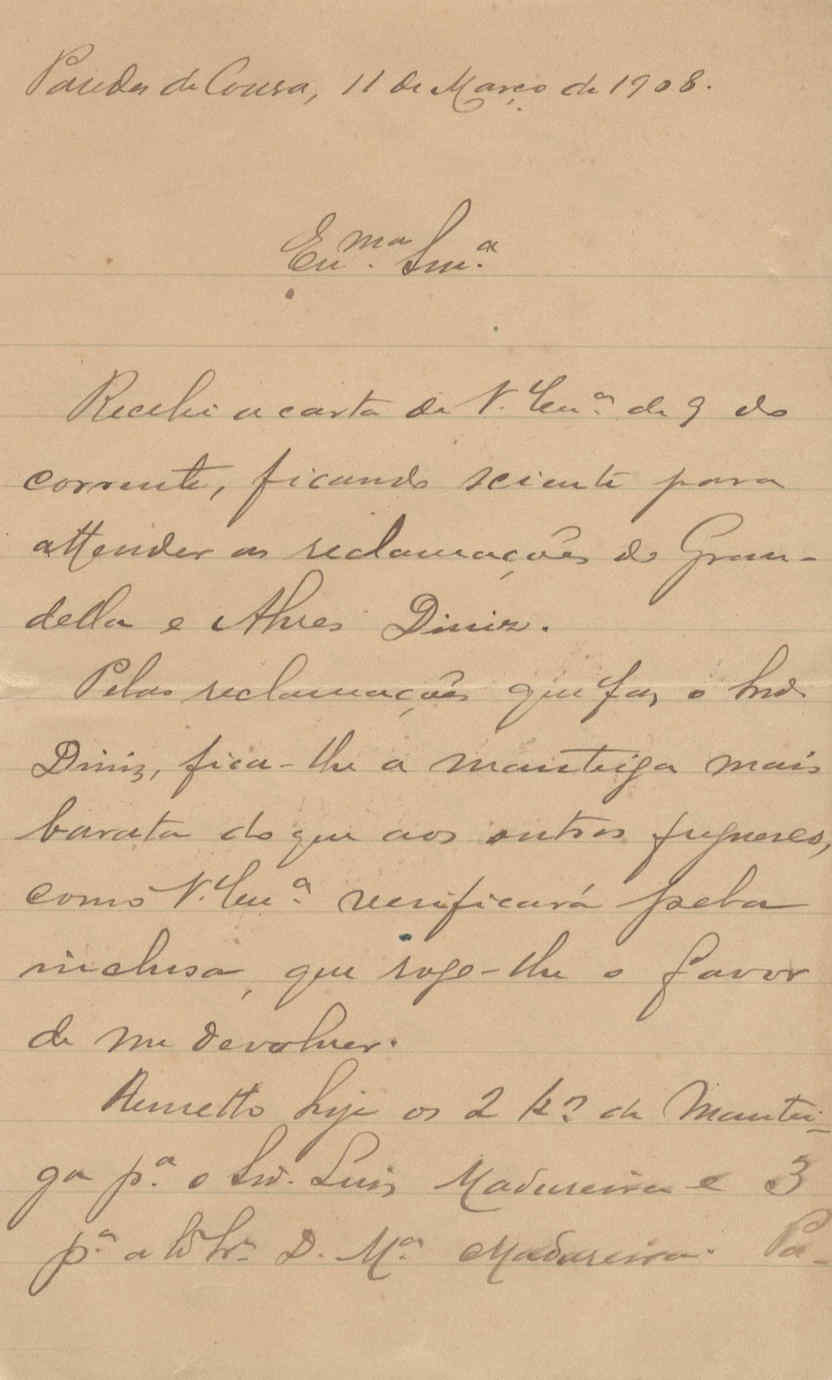 Paredes de Coura, 11 de Março de 1908.
Exᵐᵃ. Snrᵃ.
Recebi a carta de V. Exᵃ. de 9 do
corrente, ficando sciente para
attender as reclamações do Gran-
della e Alves Diniz.
Pelas reclamações que faz o Snr.
Diniz, fica-lhe a manteiga mais
barata do que aos outros freguezes,
como V. Exᵃ. verificará pela
inclusa, que rogo-lhe o favor
de me devolver.
Remetto hoje os 2 kᵒˢ de Mantei-
ga pᵃ. o Snr. Luis Madureira e 3
pᵃ. a D. Mᵃ. Madureira. Pa-